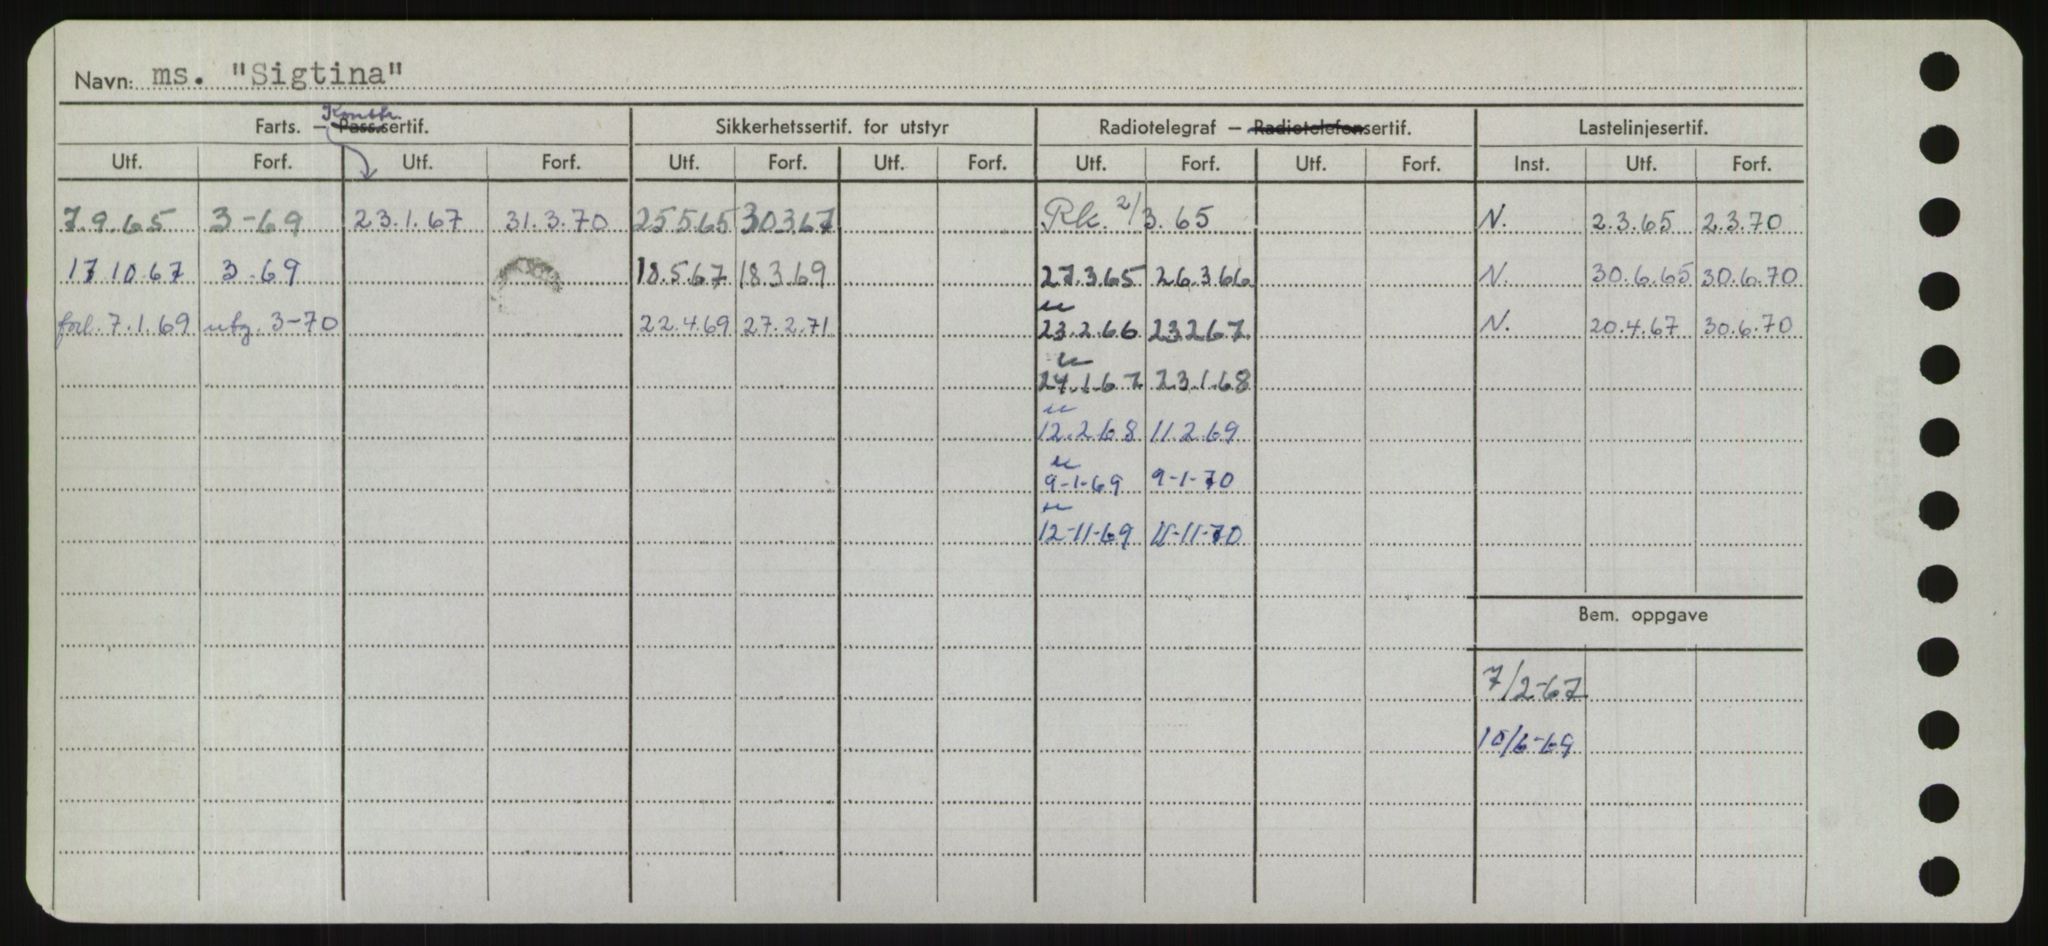 Navn: ms. "Sigtina"
Kontr.
Farts. – Pass.sertif. Sikkerhetssertif. for utstyr Radiotelegraf – Radiotelefonsertif. Lastelinjesertif.
Utf. Forf. Utf. Forf. Utf. Forf. Utf. Forf. Utf. Forf. Utf. Forf. Inst. Utf. Forf.
7.9.65 3-69 23.1.67 31.3.70 25565 30367 Rk. 2/3.65 N. 2.3.65 2.3.70
17.10.67 3-69 18.5.67 18.3.69 27.3.65 26.3.66 N. 30.6.65 30.6.70
forl. 7.1.69 3-70 22.4.69 27.2.71 23.2.66 23.2.67 N. 20.4.67 30.6.70
24.1.67 23.1.68
12.2.68 11.2.69
9-1-69 9-1-70
12-11-69 11-11-70
Bem. oppgave
7/2-67
10/6-69